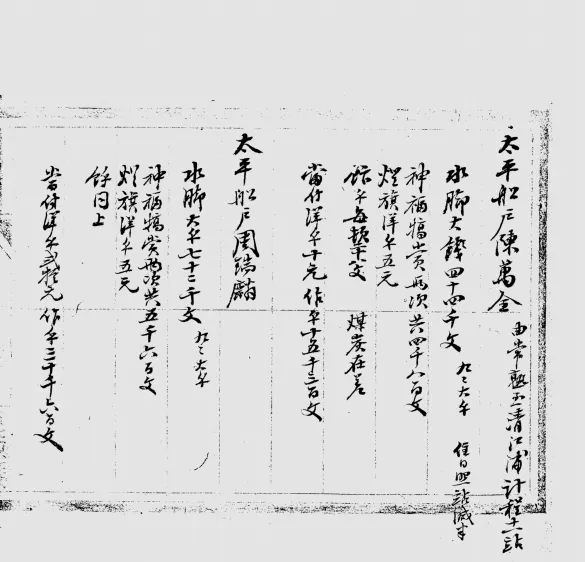 太平船戶陳萬全 由常熟至清江浦計程十一站
水腳大錢四十四千文 九三大千 住日照站減半
神福犒賞兩次共四千八百文
燈旗洋千五元
飯千每 文 煤炭在差
當付洋千十元作千十五千三百文
太平船戶周瑞
水腳大千七十二千文 九三大千
神福犒賞兩次共五千六百文
燈旗洋千五元
餘同上
當付洋千貳拾元作千三十千六百文